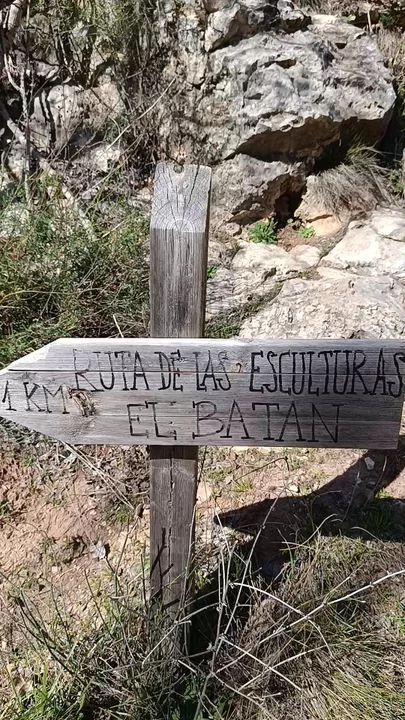 RUTA DE LAS ESCULTURAS
1 KM
EL BATAN